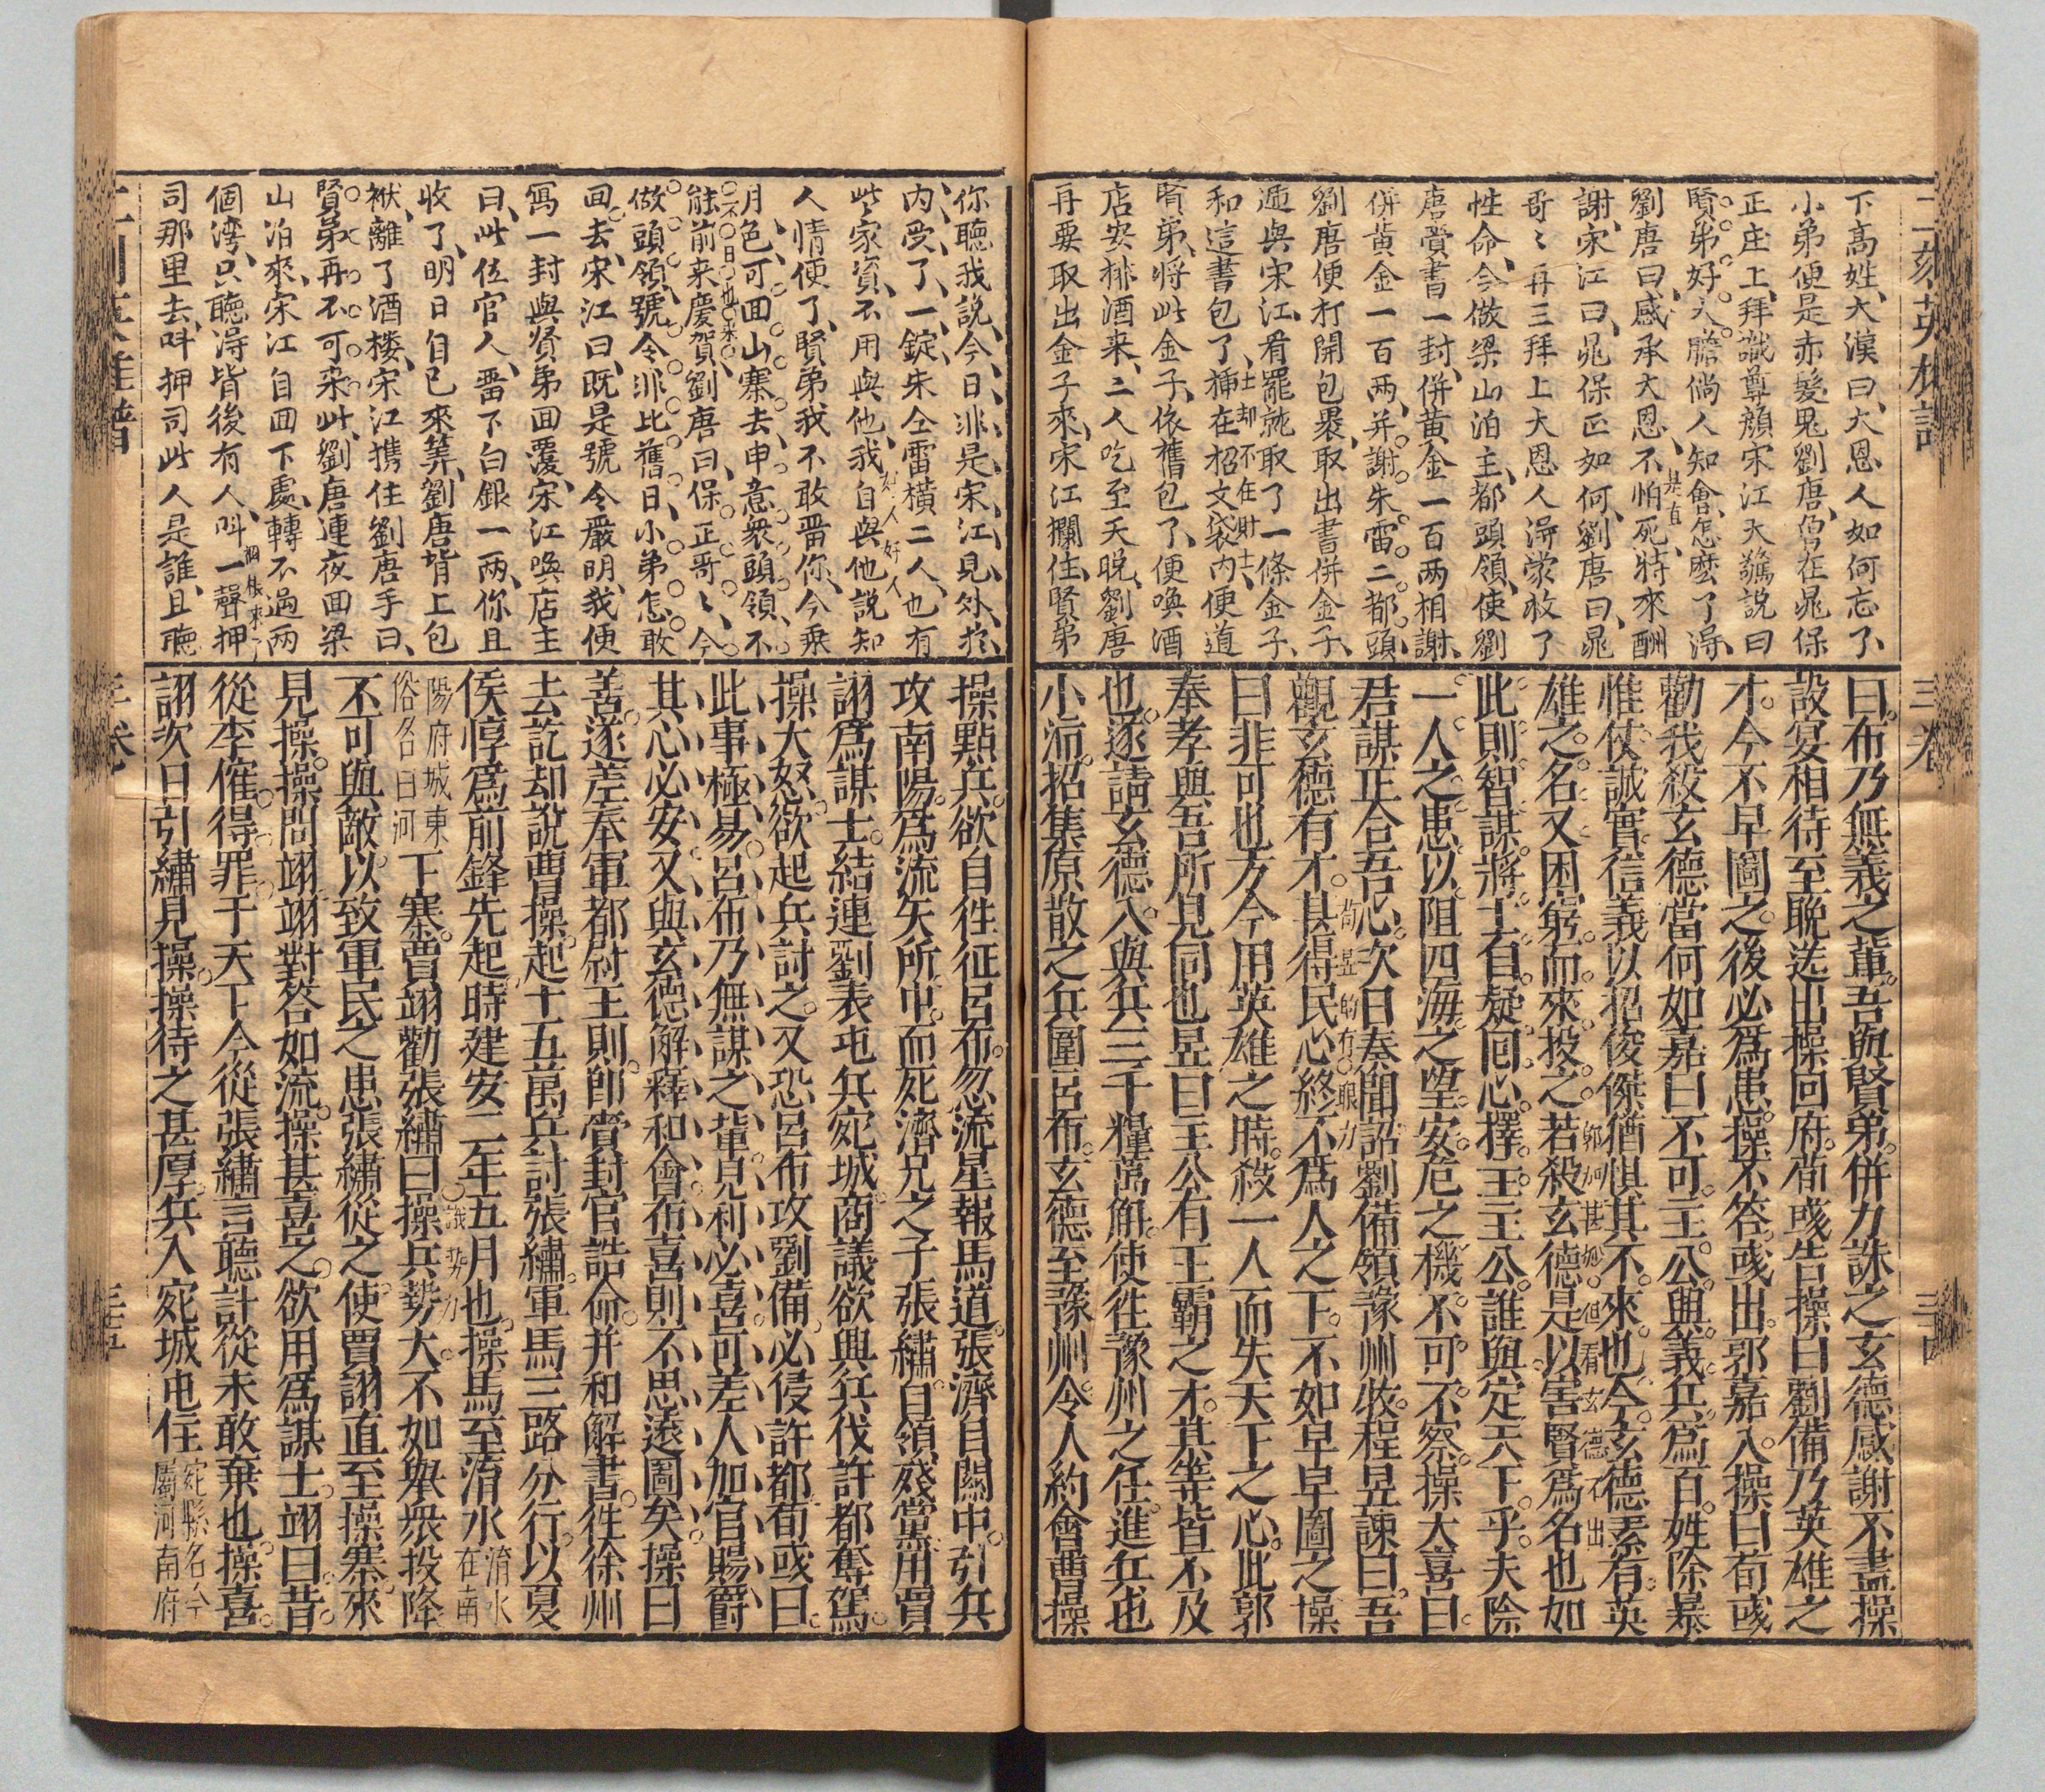 二刻英雄譜
三卷
下高姓大漢曰大恩人如何忘了
小弟便是赤髮鬼劉唐曾在晁保
正庄上拜識尊顏宋江大驚說曰
賢弟好大膽倘人知會怎麼了得
劉唐曰感承大恩不怕死特來酬
真直
謝宋江曰晁保正如何劉唐曰晁
哥〻再三拜上大恩人得蒙救了
性命今做梁山泊主都頭領使劉
唐賫書一封併黃金一百两相謝
併黃金一百两并謝朱雷二都頭
劉唐便打開包裹取出書併金子
遞與宋江看罷就取了一條金子
和這書包了揷在招文袋内便道
士却不在財士
賢弟將此金子依舊包了便喚酒
店安排酒来二人吃至天晚劉唐
再要取出金子來宋江攔住賢弟
曰布乃無義之輩吾與賢弟併力誅之玄德感謝不盡操
設宴相待至晚送出操回府荀彧告操曰劉備乃英雄之
才今不早圖之後必爲患操不答彧出郭嘉入操曰荀彧
勸我殺玄德當何如嘉曰不可主公興義兵爲百姓除暴
惟仗誠實信義以招俊傑猶惧其不來也今玄德素有英
郭嘉甚妙但看玄德不出
雄之名又困窮而來投之若殺玄德是以害賢爲名也如
此則智謀將士自疑囘心擇主主公誰與定天下乎夫除
一人之患以阻四海之望安危之機不可不察操大喜曰
君謀正合吾心次日奏聞詔劉備領豫州牧程昱諫曰吾
觀玄德有才甚得民心終不爲人之下不如早早圖之操
荀昱的有眼力
曰非可也方今用英雄之時殺一人而失天下之心此郭
奉孝與吾所見同也昱曰主公有王霸之才某等皆不及
也遂請玄德入與兵三千糧萬斛使徃豫州之任進兵屯
小沛招集原散之兵圍呂布玄德至豫州令人約會曹操
你聽我說今日非是宋江見外於
内受了一錠朱仝雷横二人也有
此家資不用與他我自與他說知
好人好人
人情便了賢弟我不敢畱你今乘
月色可囬山寨去申意衆頭領不
能前来慶賀劉唐曰保正哥〻今
做頭領號令非比舊日小弟怎敢
囬去宋江曰既是號令嚴明我便
寫一封與賢弟囬覆宋江喚店主
曰此位官人畱下白銀一两你且
收了明日自已來筭劉唐背上包
袱離了酒楼宋江携住劉唐手曰
賢弟再不可来此劉唐連夜囬梁
山泊來宋江自囬下處轉不過两
個湾只聽得背後有人叫一聲押
司那里去叫押司此人是誰且聽
操點兵欲自徃征呂布忽流星報馬道張濟自關中引兵
攻南陽爲流矢所中而死濟兄之子張繡自領殘黨用賈
詡爲謀士結連劉表屯兵宛城商議欲興兵伐許都奪駕
操大怒欲起兵討之又恐呂布攻劉備必侵許都荀彧曰
此事極易呂布乃無謀之輩見利必喜可差人加官賜爵
其心必安又與玄德解釋和會布喜則不思遠圖矣操曰
善遂差奉軍都尉王則卽賫封官誥命并和解書徃徐州
去訖却說曹操起十五萬兵討張繡軍馬三路分行以夏
侯惇爲前鋒先起時建安二年五月也操馬至淯水淯水在南
陽府城東俗名白河下寨賈翊勸張繡曰操兵勢大不如舉衆投降
識勢力
不可與敵以致軍民之患張繡從之使賈詡直至操寨來
見操操問翊翊對答如流操甚喜之欲用爲謀士翊曰昔
從李傕得罪于天下今從張繡言聽計從未敢棄也操喜
詡次日引繡見操操待之甚厚兵入宛城屯住宛縣名今屬河南府
三卷
三十五